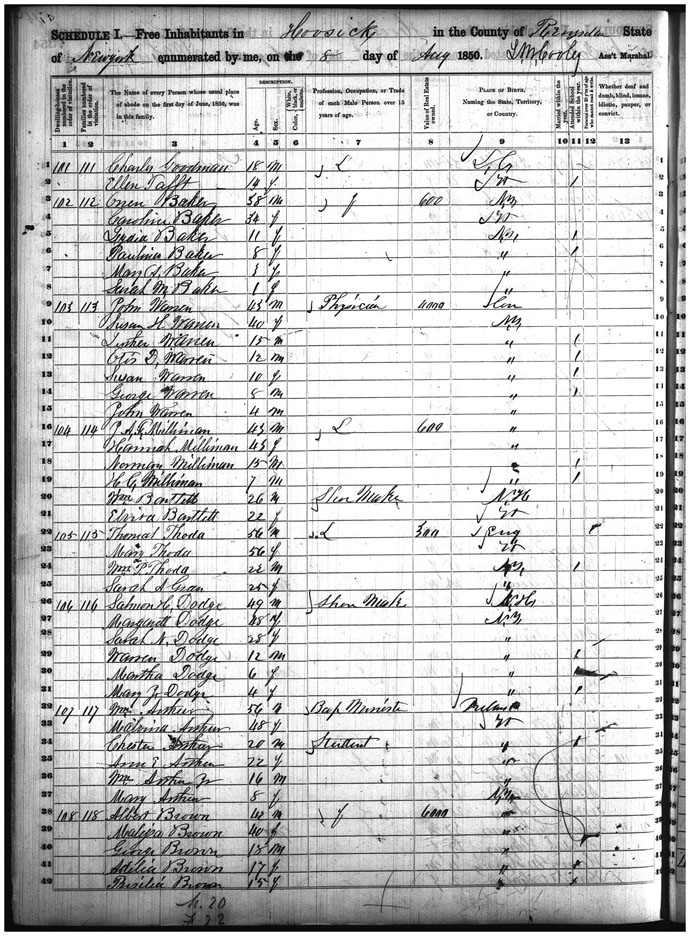 SCHEDULE I.—Free Inhabitants in Hoosick in the County of Rensselaer State
of New york enumerated by me, on the 8 day of Aug 1850. Ass't Marshal.
DESCRIPTION.
Dwelling-houses numbered in the order of visitation. Families numbered in the order of visitation. The Name of every Person whose usual place of abode on the first day of June, 1850, was in this family. Age. Sex. Color, White, black, or mulatto. Profession, Occupation, or Trade of each Male Person over 15 years of age. Value of Real Estate owned. PLACE OF BIRTH. Naming the State, Territory, or Country. Married within the year. Attended School within the year. Persons over 20 y'rs of age who cannot read & write. Whether deaf and dumb, blind, insane, idiotic, pauper, or convict.
1 2 3 4 5 6 7 8 9 10 11 12 13
1 101 111 Charly Goodman 18 m L 1
2 Ellen Tafft 14 f Vt /
3 102 112 Orren Baker 38 m f 600 N.Y. 3
4 Caroline Baker 34 f Vt 4
5 Lydia Baker 11 f N.Y. / 5
6 Paulina Baker 8 f " / 6
7 Mary A. Baker 3 f " 7
8 Sarah M. Baker 1 f " 8
9 103 113 John Warren 43 m Physician 4000 Con 9
10 Susan H. Warren 40 f N.Y. 10
11 Luther Warren 15 m " / 11
12 Otis D. Warren 12 m " / 12
13 Susan Warren 10 f " / 13
14 George Warren 8 m " / 14
15 John Warren 4 m " 15
16 104 114 P. A. G. Milliman 43 m L 600 " 16
17 Hannah Milliman 43 f " 17
18 Norman Milliman 15 m " / 18
19 H. G. Milliman 7 m " / 19
20 Wm Bartlett 26 m Shoe Make N.H. 20
21 Elvira Bartlett 22 f Vt 21
22 105 115 Thomas Thoda 56 m L 300 Eng 22
23 Mary Thoda 56 f Vt 23
24 Wm P. Thoda 22 m N.Y. / 24
25 Sarah A. 25 f " 25
26 106 116 Salmon C. Dodge 49 m Shoe Make N.H. 26
27 Margarett Dodge f N.Y. 27
28 Sarah N. Dodge 28 f " 28
29 Warren Dodge 12 m " / 29
30 Martha Dodge 6 f " 30
31 Mary J. Dodge 4 f " / 31
32 107 117 Wm Arthur 56 m Bap Minister Ireland 32
33 Malvina Arthur 48 f Vt 33
34 Chester Arthur 20 m Student " / 34
35 Ann E. Arthur 22 f " 35
36 Wm Arthur Jr 16 m " 36
37 Mary Arthur 8 f N.Y. 37
38 108 118 Albert Brown 42 m f 6000 " 38
39 Malissa Brown 40 f " 39
40 George Brown 18 m " 40
41 Adelia Brown 17 f " / 41
42 Brown 15 f " / 42